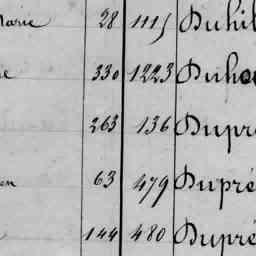 Marie 28 1115 Duhil
e 330 1223 Duhou
263 136 Dupr
en 63 479 Dupré
144 480 Dupré